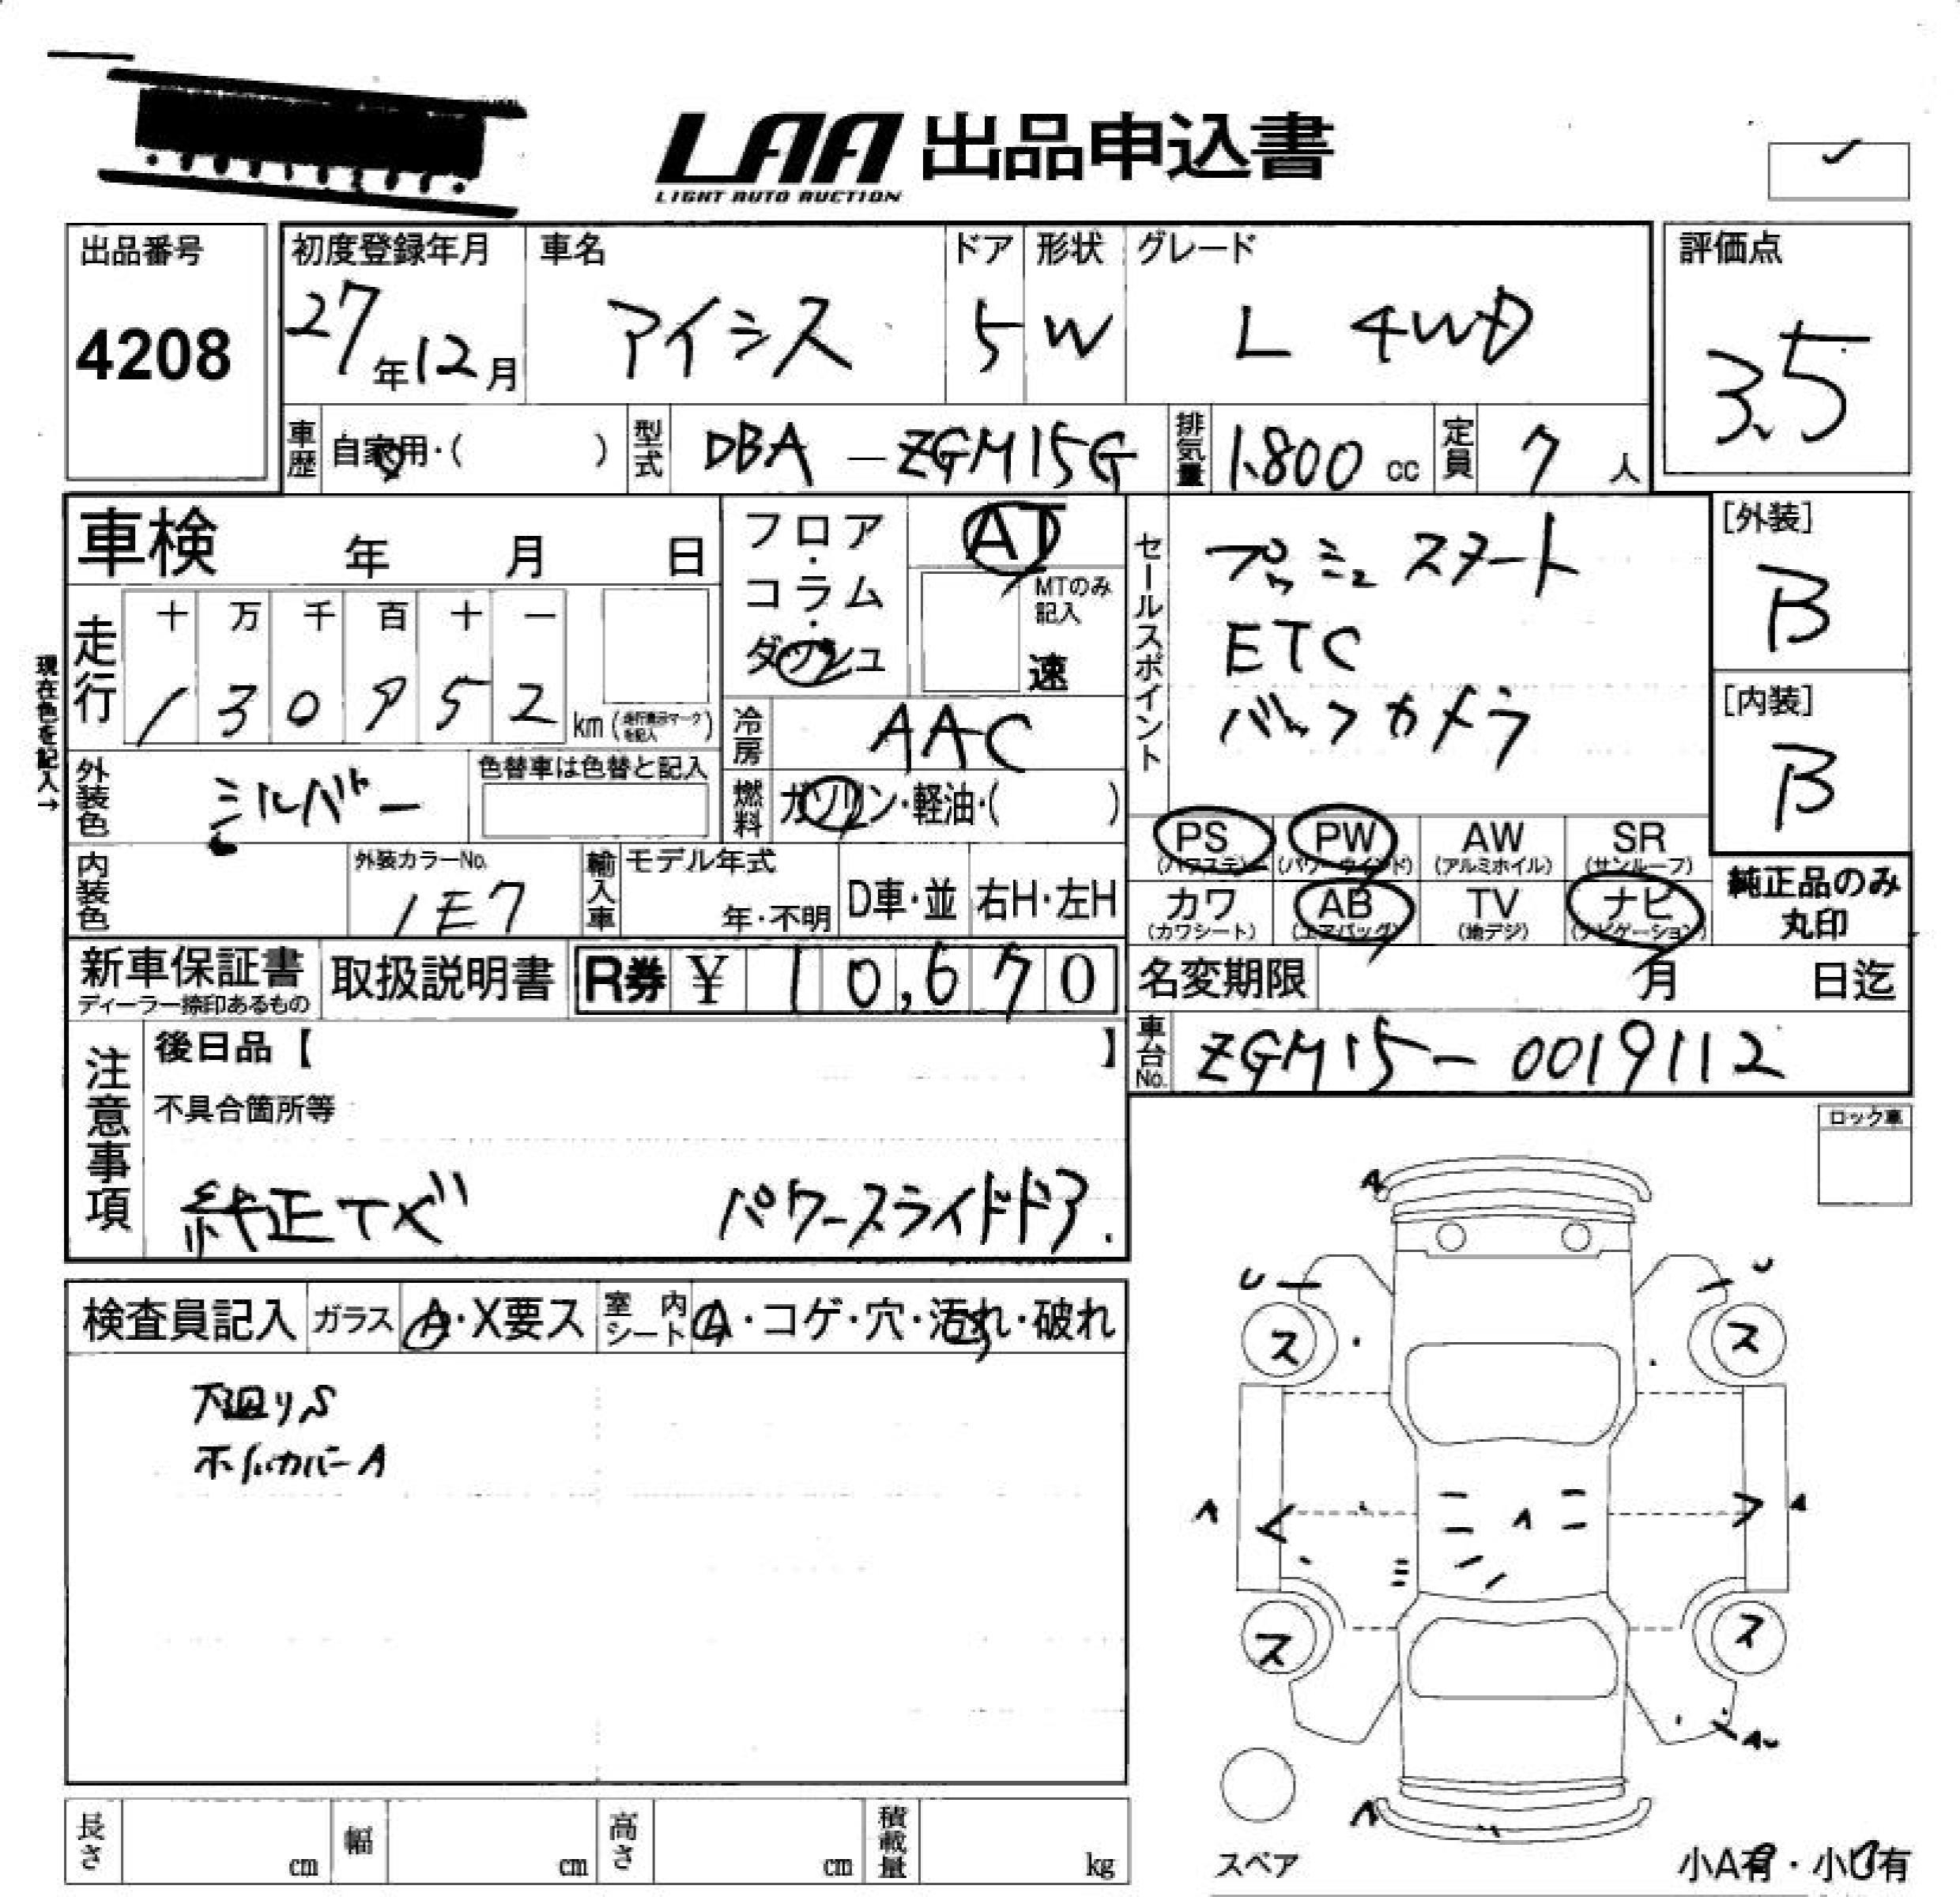 LAA 出品申込書
LIGHT AUTO AUCTION
出品番号
4208
初度登録年月
27年12月
車名
アイシス
ドア
5
形状
W
グレード
L 4WD
評価点
3.5
車歴
自家用・( )
型式
DBA-ZGM15G
排気量
1.800 cc
定員
7人
車検 年 月 日
フロア・コラム・ダッシュ
AT
MTのみ記入
速
セールスポイント
プッシュスタート
ETC
バックカメラ
[外装]
B
[内装]
B
現在色を記入→
走行
十 万 千 百 十 一
1 3 0 7 5 2 km (走行表示マークを記入)
冷房
AAC
外装色
シルバー
色替車は色替と記入
燃料
ガソリン・軽油・( )
PS (パワステ)
PW (パワーウインド)
AW (アルミホイル)
SR (サンルーフ)
カワ (カワシート)
AB (エアバッグ)
TV (地デジ)
ナビ (ナビゲーション)
純正品のみ
丸印
内装色
外装カラーNo.
1E7
輸入車
モデル年式
年・不明
D車・並
右H・左H
新車保証書
ディーラー捺印あるもの
取扱説明書
R券 ¥ 10,670
名変期限 月 日迄
車台No.
ZGM15-0019112
注意事項
後日品【 】
不具合箇所等
純正ナビ パワースライドドア.
ロック車
検査員記入
ガラス
A・X要ス
室内シート
A・コゲ・穴・汚れ・破れ
下廻りS
ホイルカバーA
A
U
U
ス
ス
A
A
A
ス
ス
AU
A
スペア
小A有・小U有
長さ cm
幅 cm
高さ cm
積載量 kg